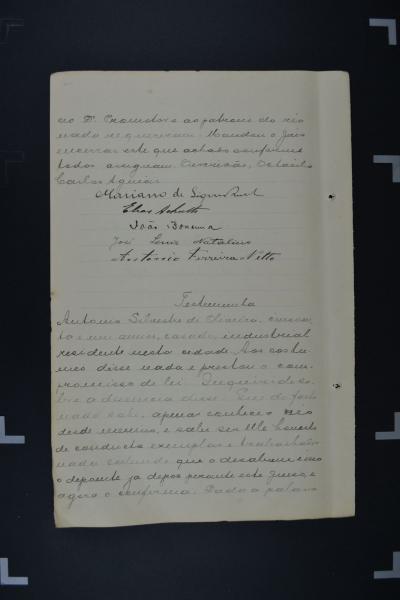 ao Dr. Promotor e ao patrono do réo
nada requereram. Mandou o Juiz
encerrar este que achado conforme
todos assignam. Escrivão, Octacilio
Carlos Aguiar
Mariano de
Elias
João
José Luiz Natalino
Antonio Ferreira Netto
Testemunha
Antonio Silvestre de Oliveira, cincoen
ta e um annos, casado, industrial
residente nesta cidade. Aos costu
mes disse nada e prestou o com
promisso de lei. Inquirido so
bre a denuncia disse: Que do facto
nada sabe, apenas conhece o réo
desde menino, e sabe ser elle homem
de conducta exemplar e trabalhador
nada sabendo que o desabone como
o depoente ja depoz perante este Juizo e
agora o confirma. Dada a palavra